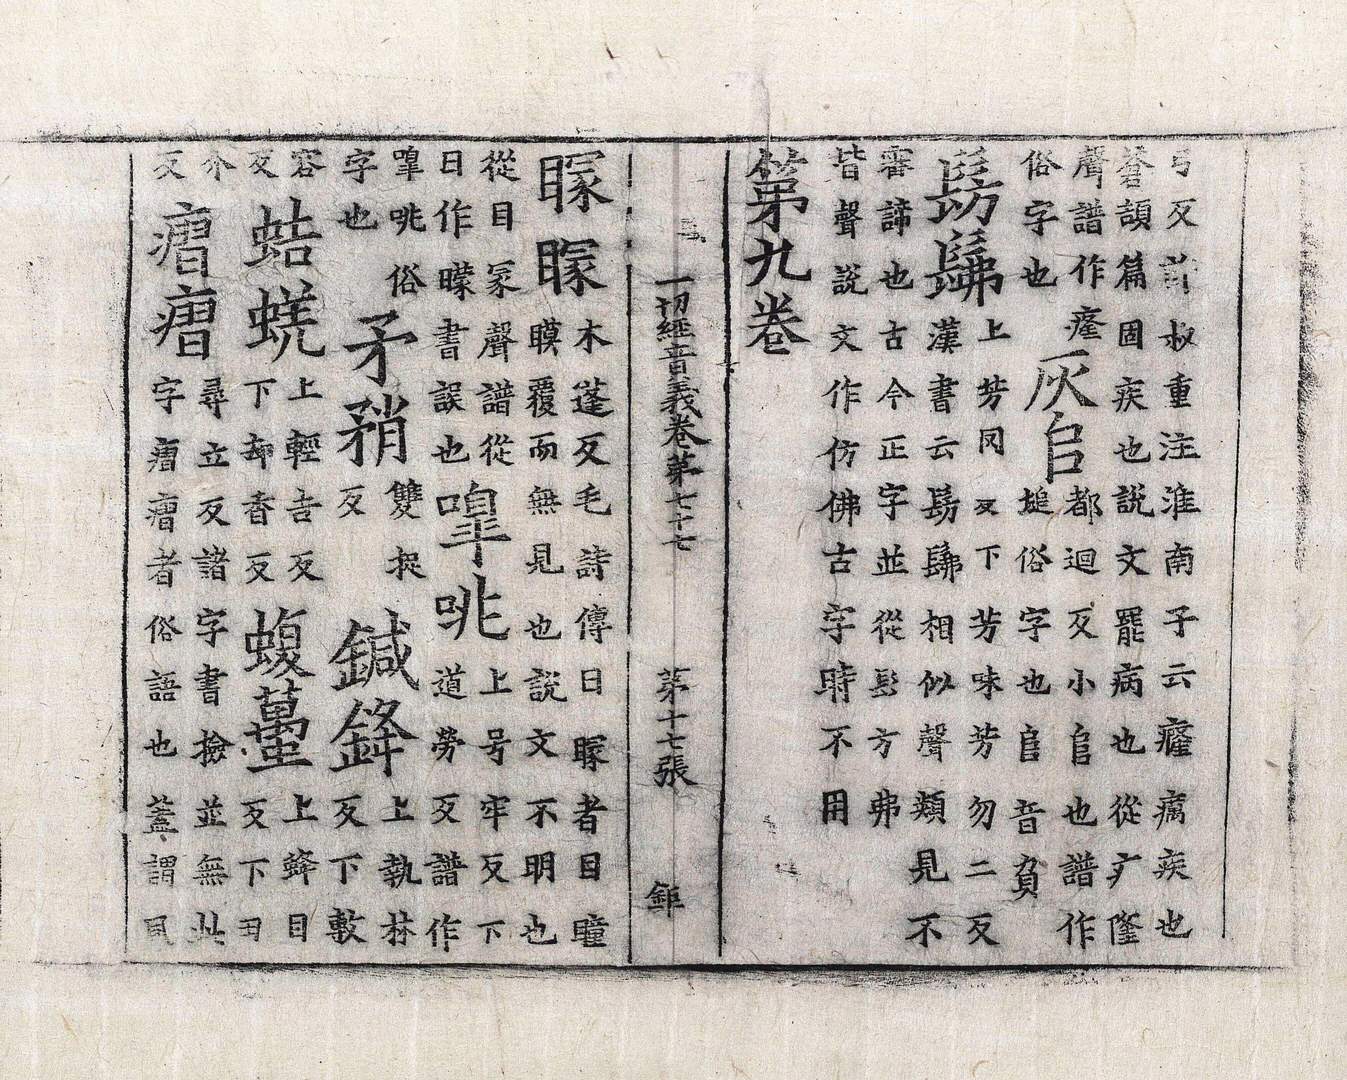 弓反許叔重注淮南子云癃癘疾也
蒼頡篇固疾也說文罷病也從疒隆
聲譜作𤸇
俗字也
灰𠂤
都迴反小𠂤也譜作
塠俗字也𠂤音負
髣髴
上芳冈反下芳味芳勿二反
漢書云髣髴相似聲類見不
審諦也古今正字並從髟方弗
皆聲說文作仿佛古字時不用
第九卷
一切經音義卷第七十七 第十七張 鉅
矇矇
木蓬反毛詩傳曰矇者目瞳
矇覆而無見也說文不明也
從目冡聲譜從
日作曚書誤也
嘷咷
上号牢反下
道勞反譜作
嘷咷俗
字也
矛矟
雙捉
反
鍼鋒
上執林
反下敷
容
反
蛣蜣
上輕吉反
下却香反
蝮蠆
上蜂目
反下丑
介
反
尋立反諸字書檢並無此
字者俗語也蓋謂風